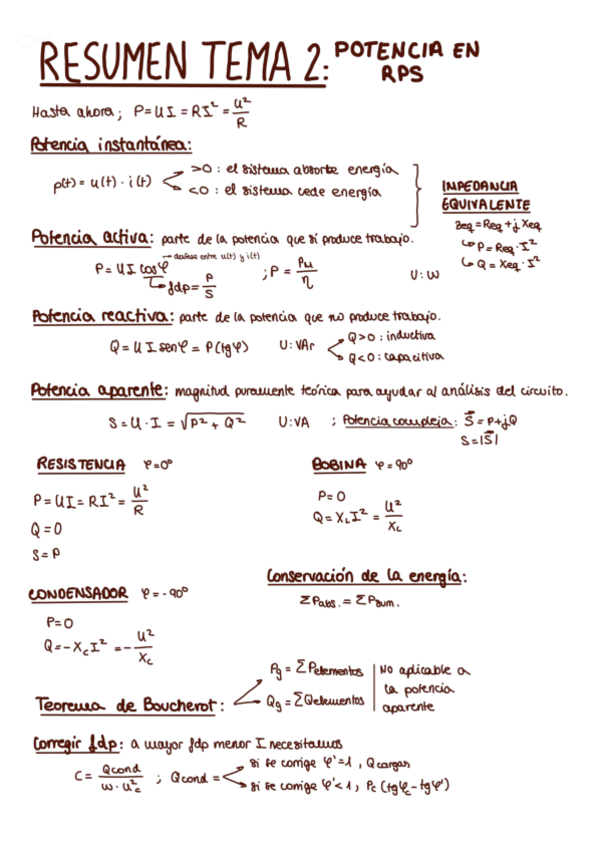 RESUMEN TEMA 2: POTENCIA EN RPS
Hasta ahora; P=UI=RI²=U²/R
Potencia instantánea:
p(t)=u(t)·i(t) >0: el sistema absorbe energía
<0: el sistema cede energía
IMPEDANCIA EQUIVALENTE
Zeq=Req+jXeq
↳P=Req·I²
↳Q=Xeq·I²
Potencia activa: parte de la potencia que sí produce trabajo.
→desfase entre u(t) y i(t)
P=UI cosφ ; P=Pu/η U: W
↳fdp=P/S
Potencia reactiva: parte de la potencia que no produce trabajo.
Q=UI senφ = P(tgφ) U: VAr
Q>0: inductiva
Q<0: capacitiva
Potencia aparente: magnitud puramente teórica para ayudar al análisis del circuito.
S=U·I=√P²+Q² U: VA ; Potencia compleja: S⃗=P+jQ
S=|S⃗|
RESISTENCIA φ=0°
P=UI=RI²=U²/R
Q=0
S=P
BOBINA φ=90°
P=0
Q=XLI²=U²/XL
CONDENSADOR φ=-90°
P=0
Q=-XcI²=-U²/Xc
Conservación de la energía:
ΣPabs.=ΣPsum.
Teorema de Boucherot:
Pg=ΣPelementos
Qg=ΣQelementos
No aplicable a
la potencia
aparente
Corregir fdp: a mayor fdp menor I necesitamos
C=Qcond/ω·U²c ; Qcond=
si se corrige φ'=1, Qcargas
si se corrige φ'<1, Pc(tgφc-tgφ')